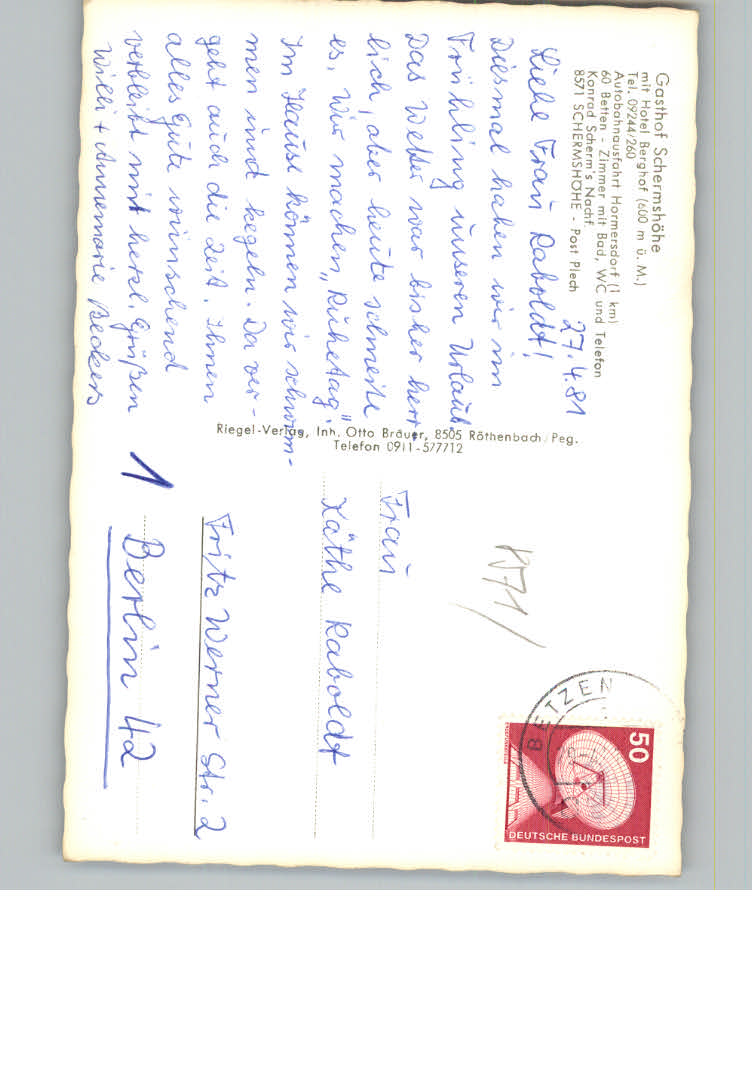 Gasthof Schermshöhe
mit Hotel Berghof (600 m ü. M.)
Tel. 09244/260
Autobahnausfahrt Hormersdorf (1 km)
60 Betten - Zimmer mit Bad, WC und Telefon
Konrad Scherm's Nachf.
8571 SCHERMSHÖHE - Post Plech
27.4.81
Liebe Frau Raboldt!
Diesmal haben wir im
Frühling unseren Urlaub
Das Wetter war bisher herr
lich, aber heute schneite
es. Wir machen „Ruhetag".
Im Hause können wir schwim-
men und kegeln. Da ver-
geht auch die Zeit. Ihnen
alles Gute wünschend
verbleibt mit herzl. Grüßen
Willi + Annemarie Beckers
Riegel-Verlag, Inh. Otto Bräuer, 8505 Röthenbach/Peg.
Telefon 0911-577712
Frau
Käthe Raboldt
Fritz Werner Str. 2
1 Berlin 42
K571/
8 ETZEN
50
DEUTSCHE BUNDESPOST